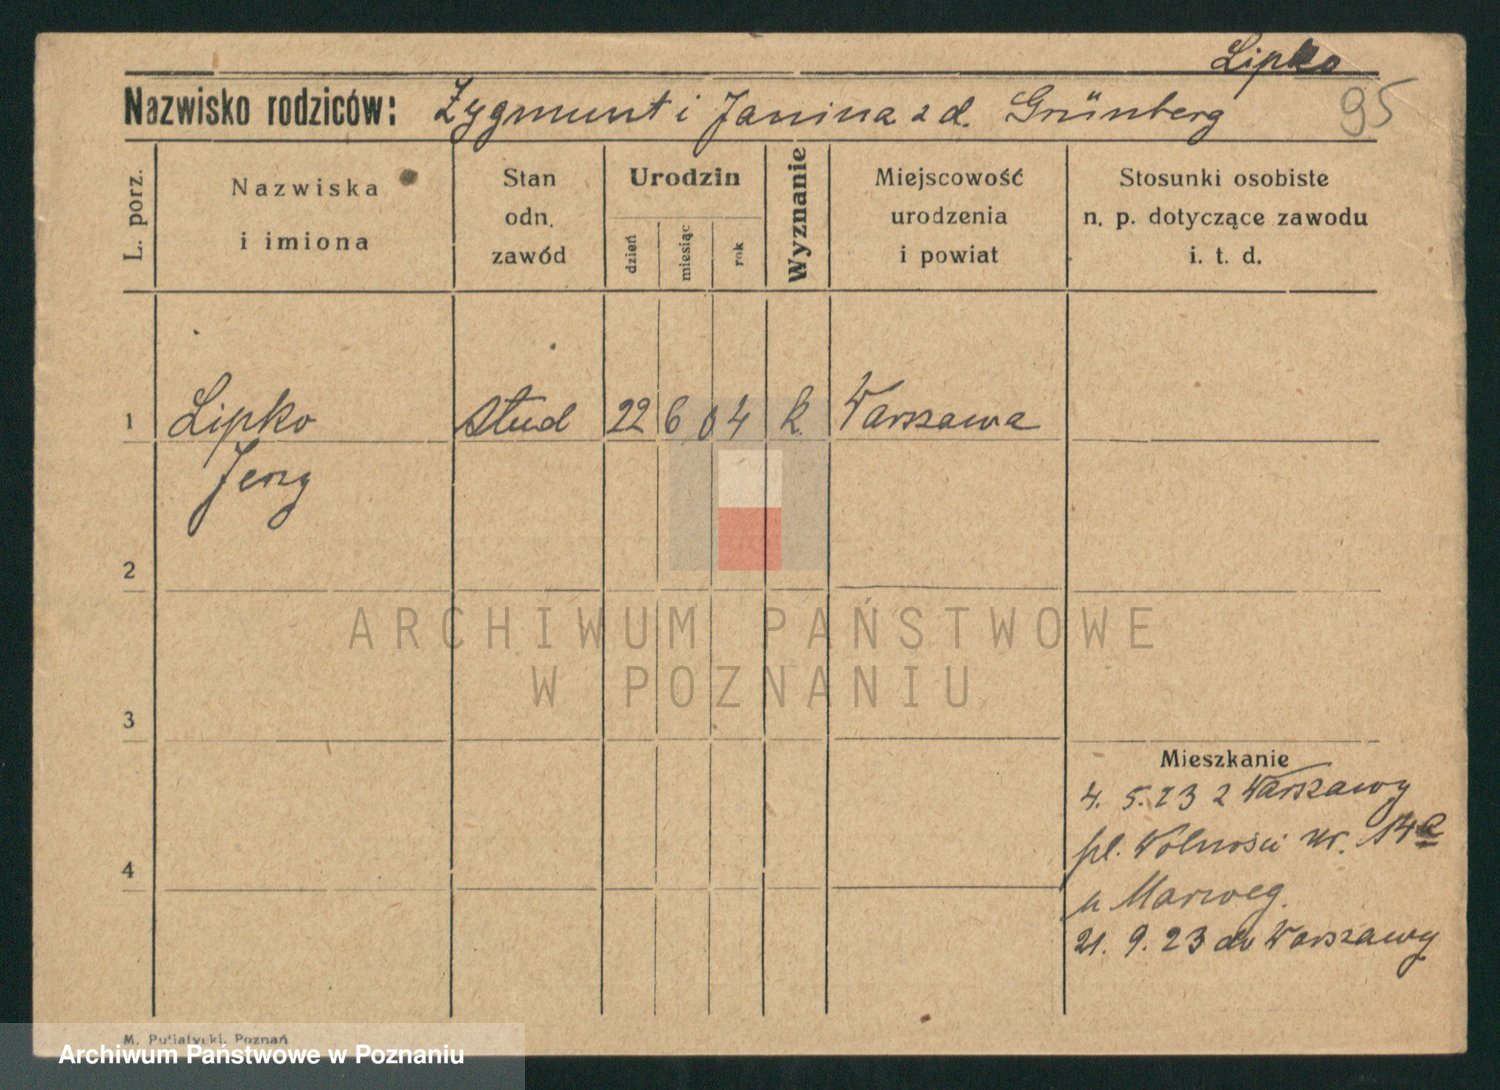 Lipko
Nazwisko rodziców: Zygmunt i Janina z d. Grünberg 95
L. porz.
Nazwiska i imiona
Stan odn. zawód
Urodzin
dzień miesiąc rok
Wyznanie
Miejscowość urodzenia i powiat
Stosunki osobiste n. p. dotyczące zawodu i. t. d.
1 Lipko stud 22 6 04 k. Warszawa
Jerzy
2
ARCHIWUM PAŃSTWOWE
W POZNANIU
3
Mieszkanie
4. 5. 23 z Warszawy
pl. Wolności nr. 14
4
u Marweg.
21. 9. 23 do Warszawy
M. Putiatycki, Poznań
Archiwum Państwowe w Poznaniu